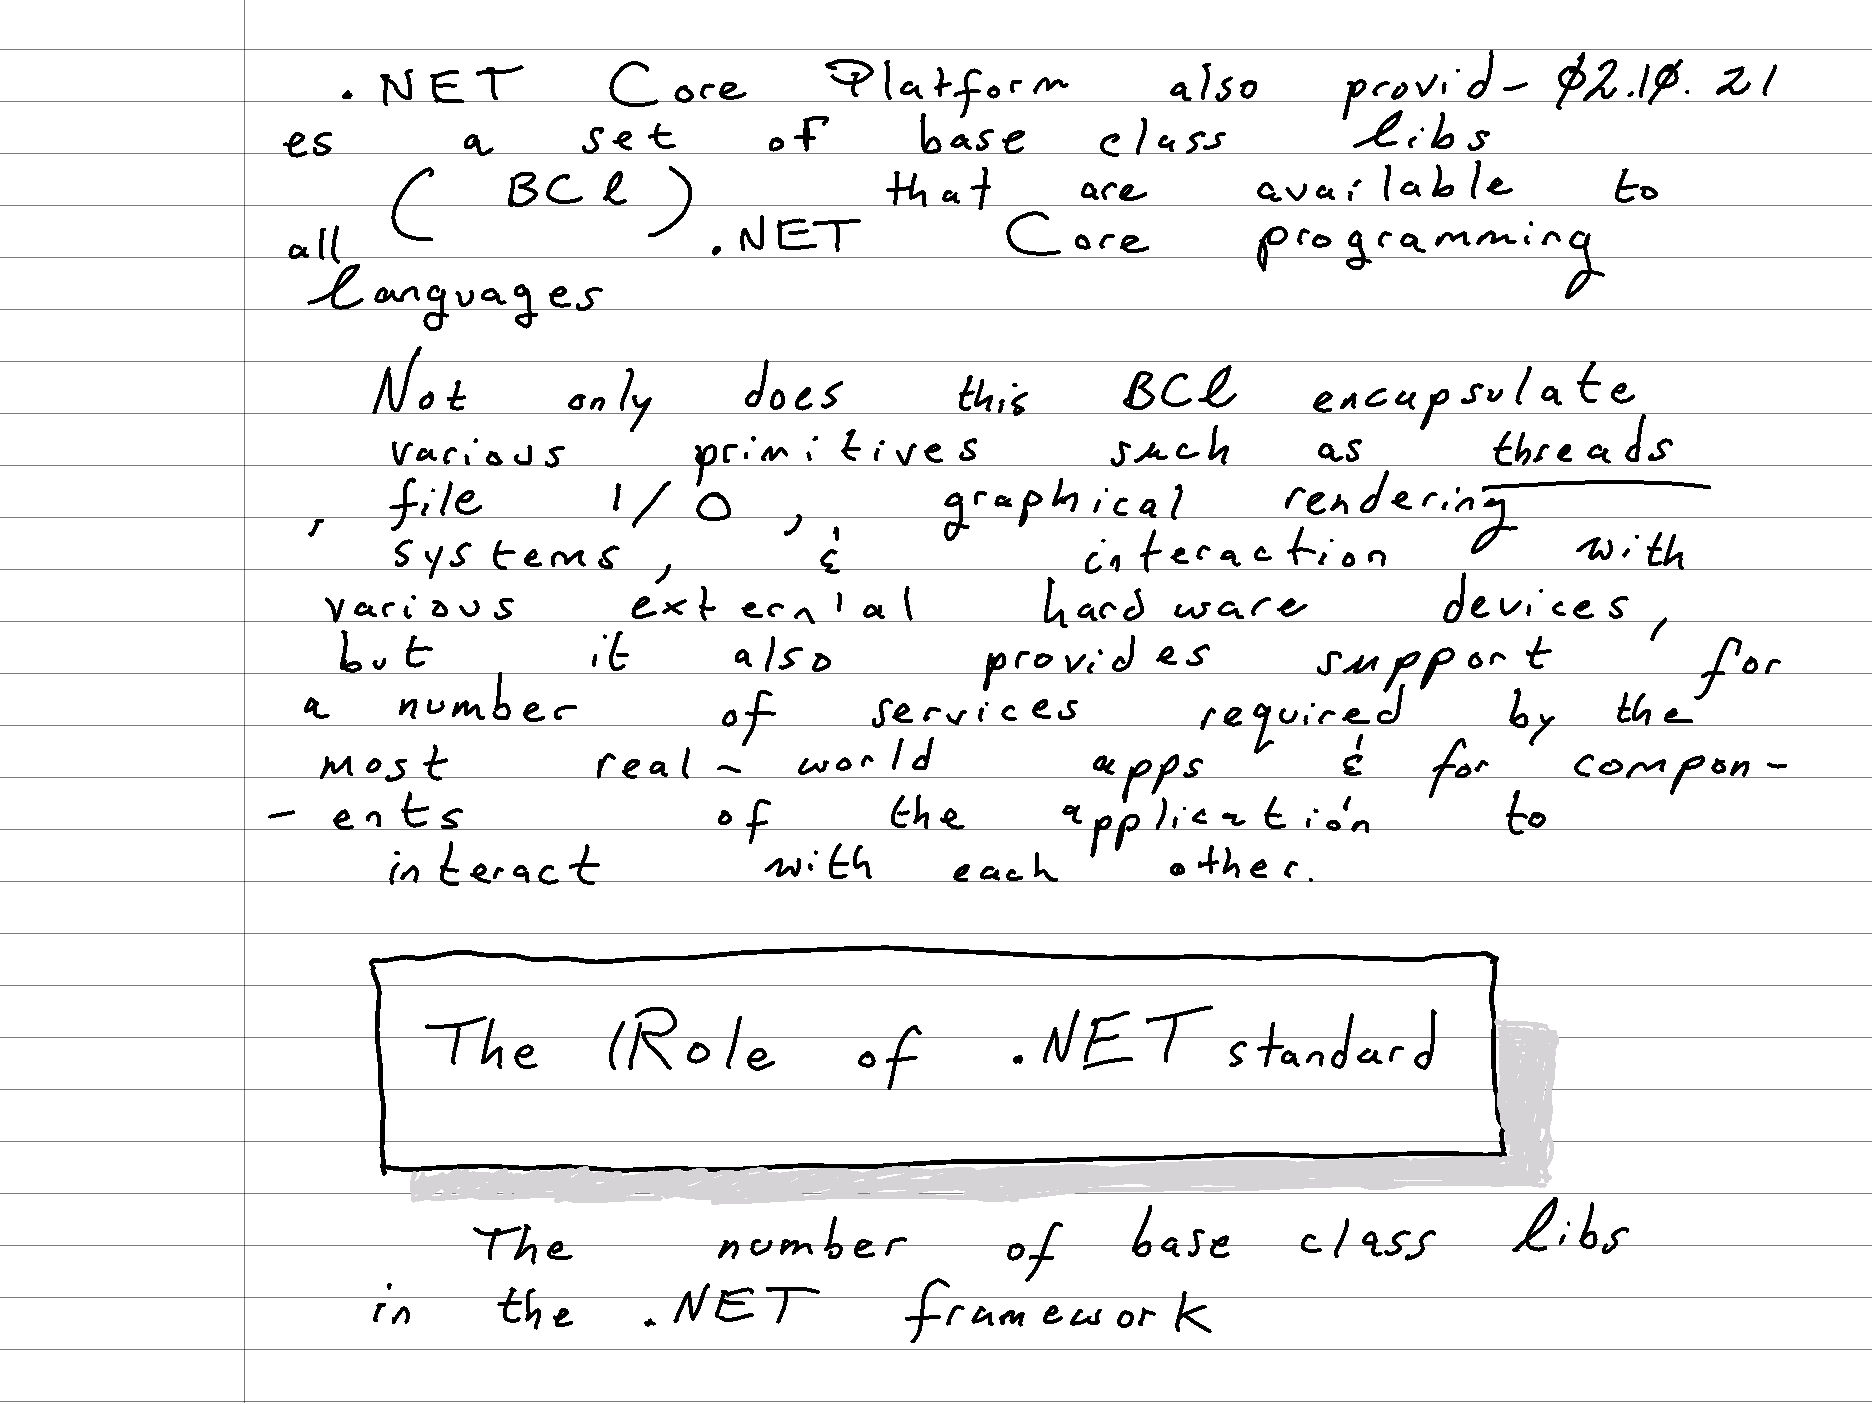 .NET Core Platform also provid- 02.10.21
es a set of base class libs
( BCl ) that are available to
all .NET Core programming
languages
Not only does this BCl encapsulate
various primitives such as threads
, file I/O, graphical rendering
systems, & interaction with
various extern'al hardware devices,
but it also provides support for
a number of services required by the
most real-world apps & for compon-
-ents of the application to
interact with each other.
The Role of .NET standard
The number of base class libs
in the .NET framework